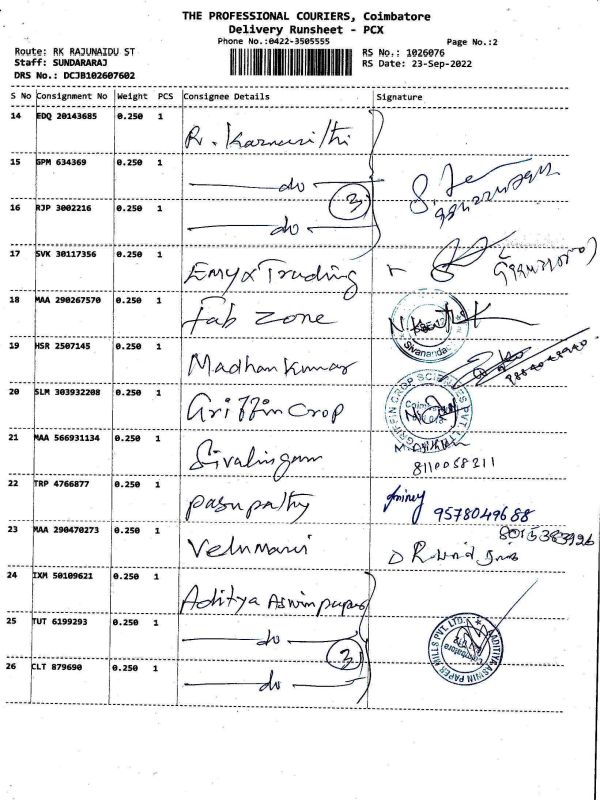 THE PROFESSIONAL COURIERS, Coimbatore
Delivery Runsheet - PCX
Phone No.:0422-3505555
Page No.:2
Route: RK RAJUNAIDU ST
RS No.: 1026076
Staff: SUNDARARAJ
RS Date: 23-Sep-2022
DRS No.: DCJB102607602
S No Consignment No Weight PCS Consignee Details Signature
14 EDQ 20143685 0.250 1 R.
15 GPM 634369 0.250 1 do
16 RJP 3002216 0.250 1 do 3
17 SVK 30117356 0.250 1 Emyx Trading
18 MAA 290267570 0.250 1 Fab Zone
19 HSR 2507145 0.250 1 Madhan Kumar
20 SLM 303932208 0.250 1 Griffin Crop
GRIFFIN CROP SCIENCES PVT. LTD.
21 MAA 566931134 0.250 1 Sivalingam
8110058211
22 TRP 4766877 0.250 1 Pasupathy 9578049688
23 MAA 290470273 0.250 1 Velumani 8015383926
24 IXM 50109621 0.250 1 Aditya Aswin paper
25 TUT 6199293 0.250 1 do
26 CLT 879690 0.250 1 do 3
AADITYA ASWIN PAPER MILLS PVT. LTD.
Coimbatore